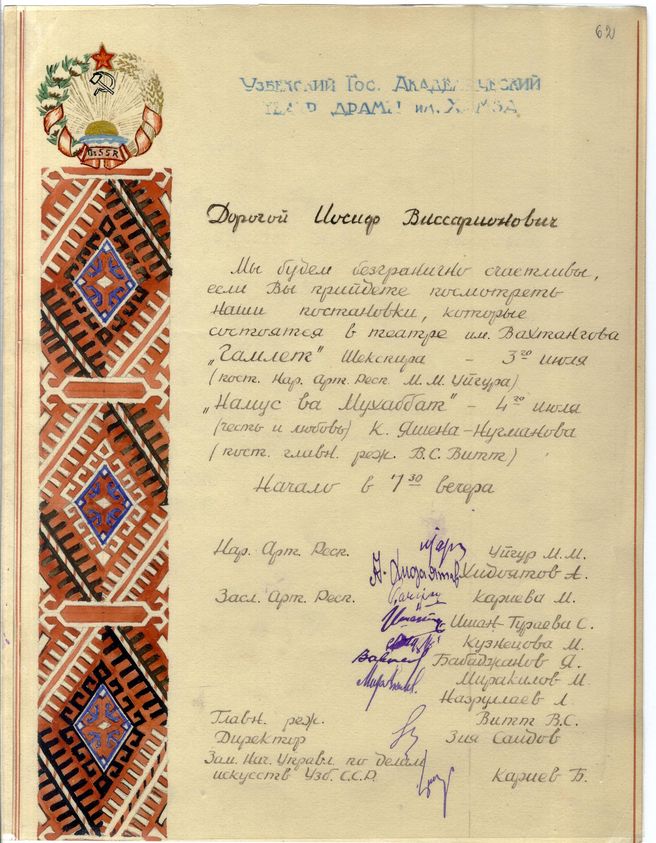 62
Узбекский Гос. Академический
театр драмы им. Хамза
UzSSR
Дорогой Иосиф Виссарионович
Мы будем безгранично счастливы,
если Вы прийдете посмотреть
наши постановки, которые
состоятся в театре им. Вахтангова
„Гамлет" Шекспира - 3го июля
(пост. Нар. Арт. Респ. М. М. Уйгура)
„Намус ва Мухаббат" - 4го июля
(честь и любовь) К. Яшена-Нугманова
(пост. главн. реж. В. С. Витт)
Начало в 7 30 вечера
Нар. Арт. Респ. Уйгур М. М.
А. Хидоятов Хидоятов А.
Засл. Арт. Респ. Кариева М.
Ишан-Тураева С.
Кузнецова М.
Бабаджанов Я.
Миракилов М.
Назруллаев Л.
Главн. реж. Витт В. С.
Директор Зия Саидов
Зам. Нач. Управл. по делам
искусств Узб. С.С.Р. Кариев Б.